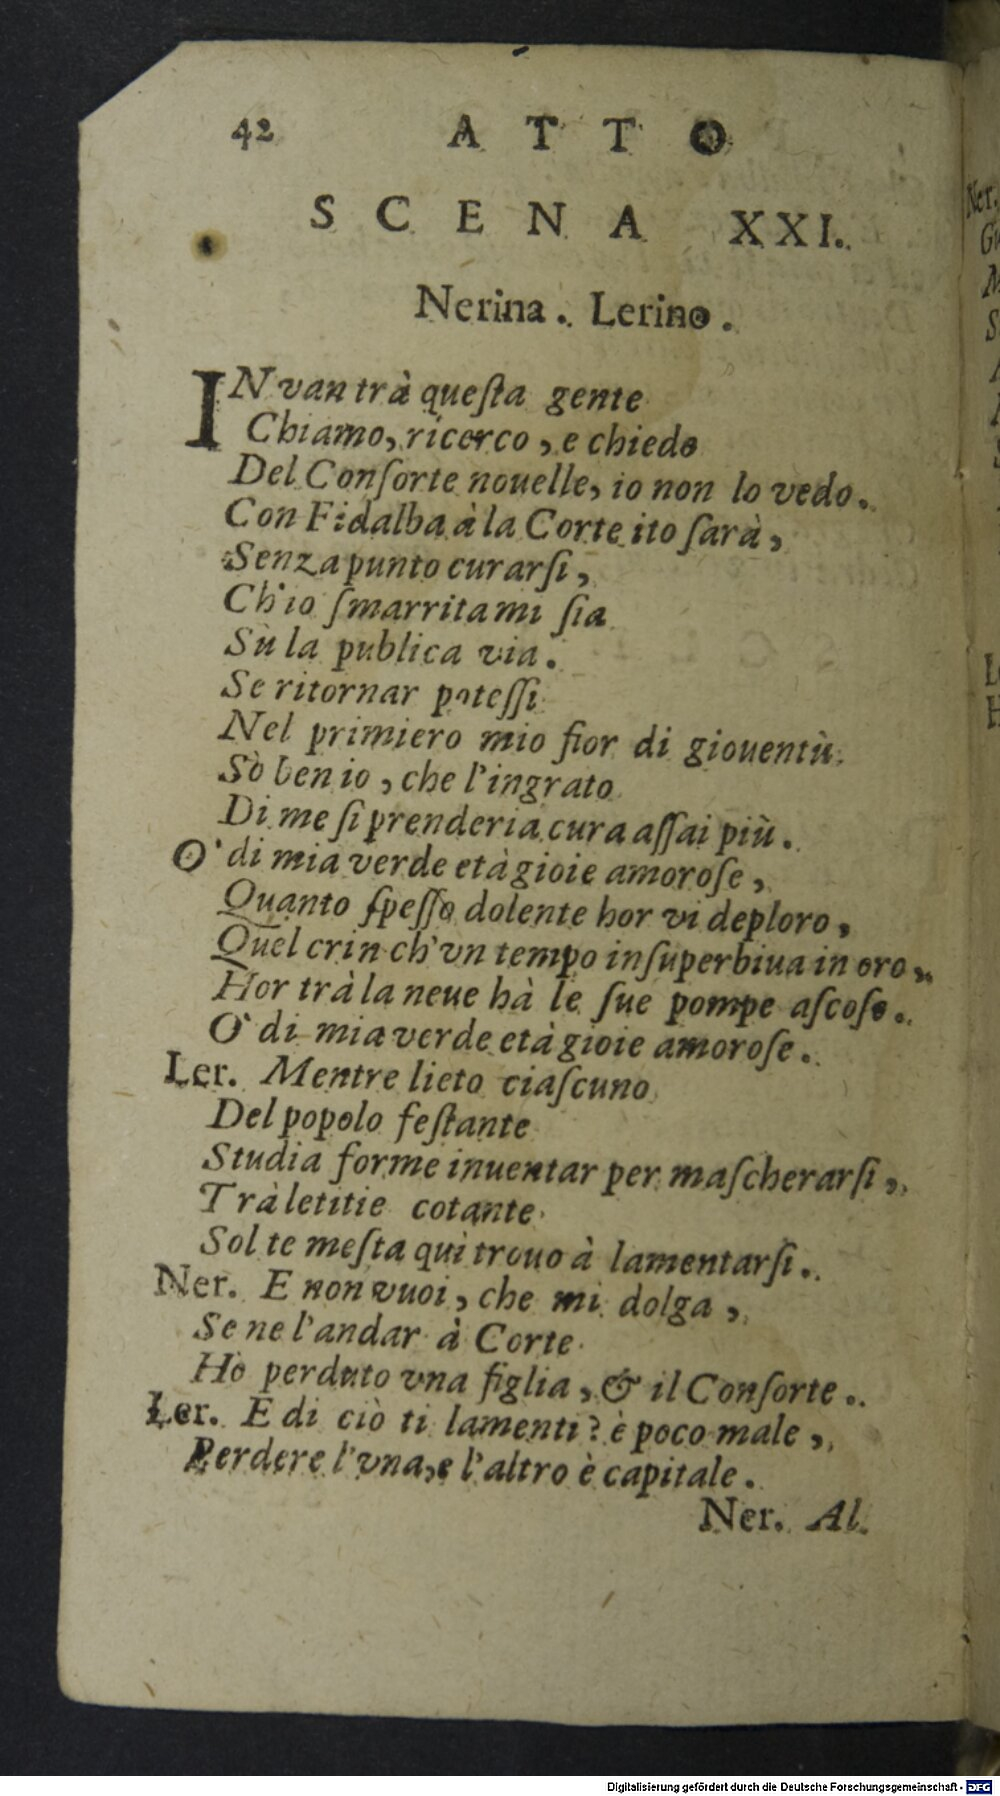 42 ATTO
SCENA XXI.
Nerina. Lerino.
IN van trà queſta gente
Chiamo, ricerco, e chiedo
Del Conſorte nouelle, io non lo vedo.
Con Fidalba à la Corte ito ſarà,
Senza punto curarſi,
Ch'io ſmarrita mi ſia
Sù la publica via.
Se ritornar poteſſi
Nel primiero mio fior di giouentù
Sò ben io, che l'ingrato
Di me ſi prenderia cura aſſai più.
O' di mia verde età gioie amoroſe,
Quanto ſpeſſo dolente hor vi deploro,
Quel crin ch'vn tempo inſuperbiua in oro,
Hor trà la neue hà le ſue pompe aſcoſe.
O' di mia verde età gioie amoroſe.
Ler. Mentre lieto ciaſcuno
Del popolo feſtante
Studia forme inuentar per maſcherarſi,
Trà letitie cotante
Sol te meſta quì trouo à lamentarſi.
Ner. E non vuoi, che mi dolga,
Se ne l'andar à Corte
Hò perduto vna figlia, & il Conſorte.
Ler. E di ciò ti lamenti? è poco male,
Perdere l'vna, e l'altro è capitale.
Ner. Al
Ner.
Digitalisierung gefördert durch die Deutsche Forschungsgemeinschaft - DFG